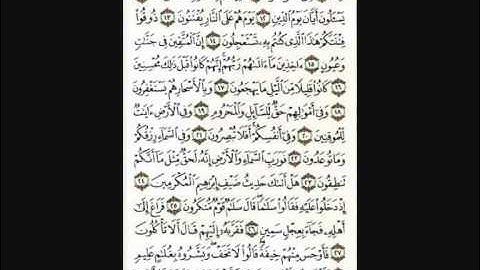 يَسْـَٔلُونَ أَيَّانَ يَوْمُ ٱلدِّينِ ١٢ يَوْمَ هُمْ عَلَى ٱلنَّارِ يُفْتَنُونَ ١٣ ذُوقُوا۟
فِتْنَتَكُمْ هَٰذَا ٱلَّذِى كُنتُم بِهِۦ تَسْتَعْجِلُونَ ١٤ إِنَّ ٱلْمُتَّقِينَ فِى جَنَّٰتٍ
وَعُيُونٍ ١٥ ءَاخِذِينَ مَآ ءَاتَىٰهُمْ رَبُّهُمْ إِنَّهُمْ كَانُوا۟ قَبْلَ ذَٰلِكَ مُحْسِنِينَ
١٦ كَانُوا۟ قَلِيلًا مِّنَ ٱلَّيْلِ مَا يَهْجَعُونَ ١٧ وَبِٱلْأَسْحَارِ هُمْ يَسْتَغْفِرُونَ
١٨ وَفِىٓ أَمْوَٰلِهِمْ حَقٌّ لِّلسَّآئِلِ وَٱلْمَحْرُومِ ١٩ وَفِى ٱلْأَرْضِ ءَايَٰتٌ
لِّلْمُوقِنِينَ ٢٠ وَفِىٓ أَنفُسِكُمْ أَفَلَا تُبْصِرُونَ ٢١ وَفِى ٱلسَّمَآءِ رِزْقُكُمْ
وَمَا تُوعَدُونَ ٢٢ فَوَرَبِّ ٱلسَّمَآءِ وَٱلْأَرْضِ إِنَّهُۥ لَحَقٌّ مِّثْلَ مَآ أَنَّكُمْ
تَنطِقُونَ ٢٣ هَلْ أَتَىٰكَ حَدِيثُ ضَيْفِ إِبْرَٰهِيمَ ٱلْمُكْرَمِينَ ٢٤
إِذْ دَخَلُوا۟ عَلَيْهِ فَقَالُوا۟ سَلَٰمًا قَالَ سَلَٰمٌ قَوْمٌ مُّنكَرُونَ ٢٥ فَرَاغَ إِلَىٰٓ
أَهْلِهِۦ فَجَآءَ بِعِجْلٍ سَمِينٍ ٢٦ فَقَرَّبَهُۥٓ إِلَيْهِمْ قَالَ أَلَا تَأْكُلُونَ
٢٧ فَأَوْجَسَ مِنْهُمْ خِيفَةً قَالُوا۟ لَا تَخَفْ وَبَشَّرُوهُ بِغُلَٰمٍ عَلِيمٍ